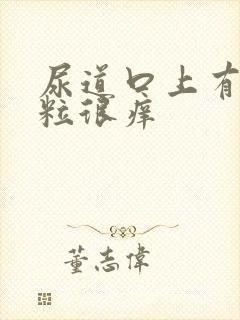 尿道口上有
粒很痒
董志偉